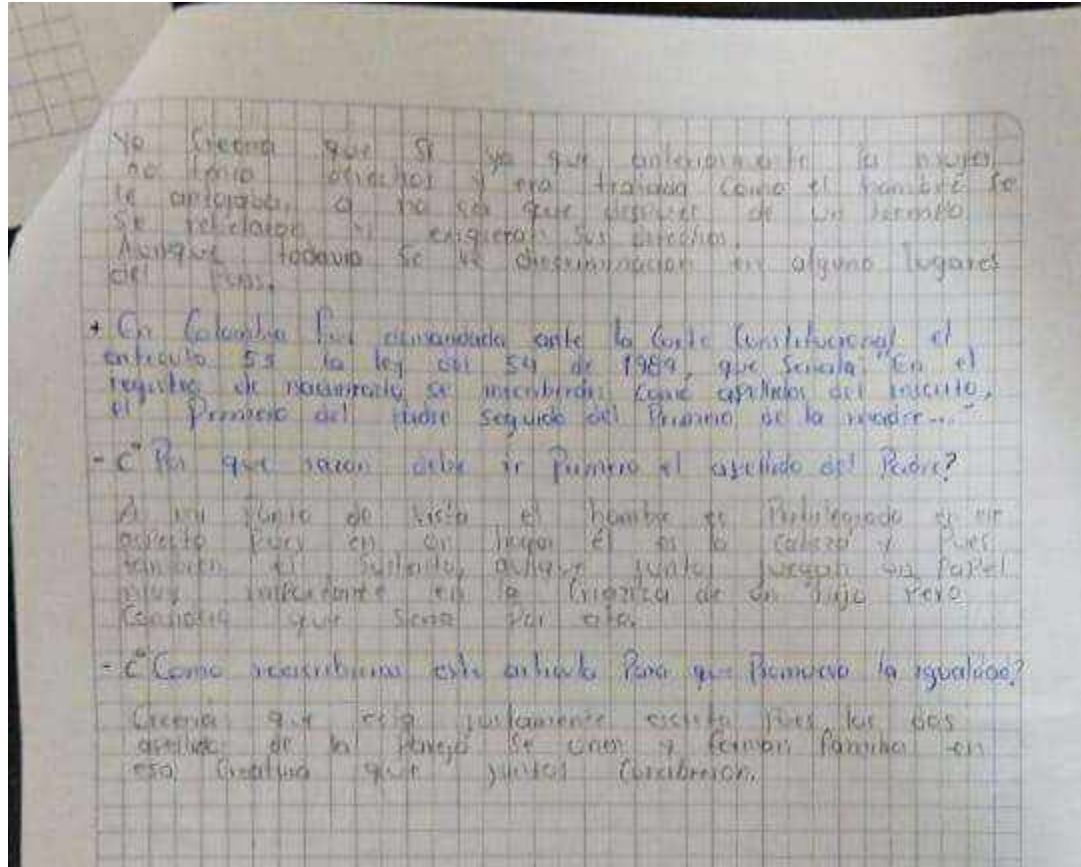 Yo Creeria que si ya que anteriormente la mujer
no tenia derechos y era tratada Como el hombre se
le antojaba, a no ser que despues de un tiempo
se rebelaron y exigieron sus derechos.
Aunque todavia se ve discriminacion en alguno lugares
del Pais.
+ En Colombia fue demandada ante la Corte Constitucional el
articulo 53 la ley del 54 de 1989, que Senala "En el
registro de nacimiento se inscribiran como apellidos del inscrito,
el Primero del Padre seguido del Primero de la madre..."
- ¿Por que razon debe ir Primero el apellido del Padre?
A mi Punto de vista el hombre es Privilegiado en
aspecto Pues en un hogar él es la cabeza y Pues
tambien el sustento, aunque juntos juegan un Papel
muy importante en la Crianza de un hijo Pero
que seria Por
- ¿Como reescribirias este articulo Para que Promueva la igualdad?
Creeria que esta justamente escrito Pues los dos
apellidos de la Pareja se unen y forman familia en
esa Creatura que juntos Concibieron.